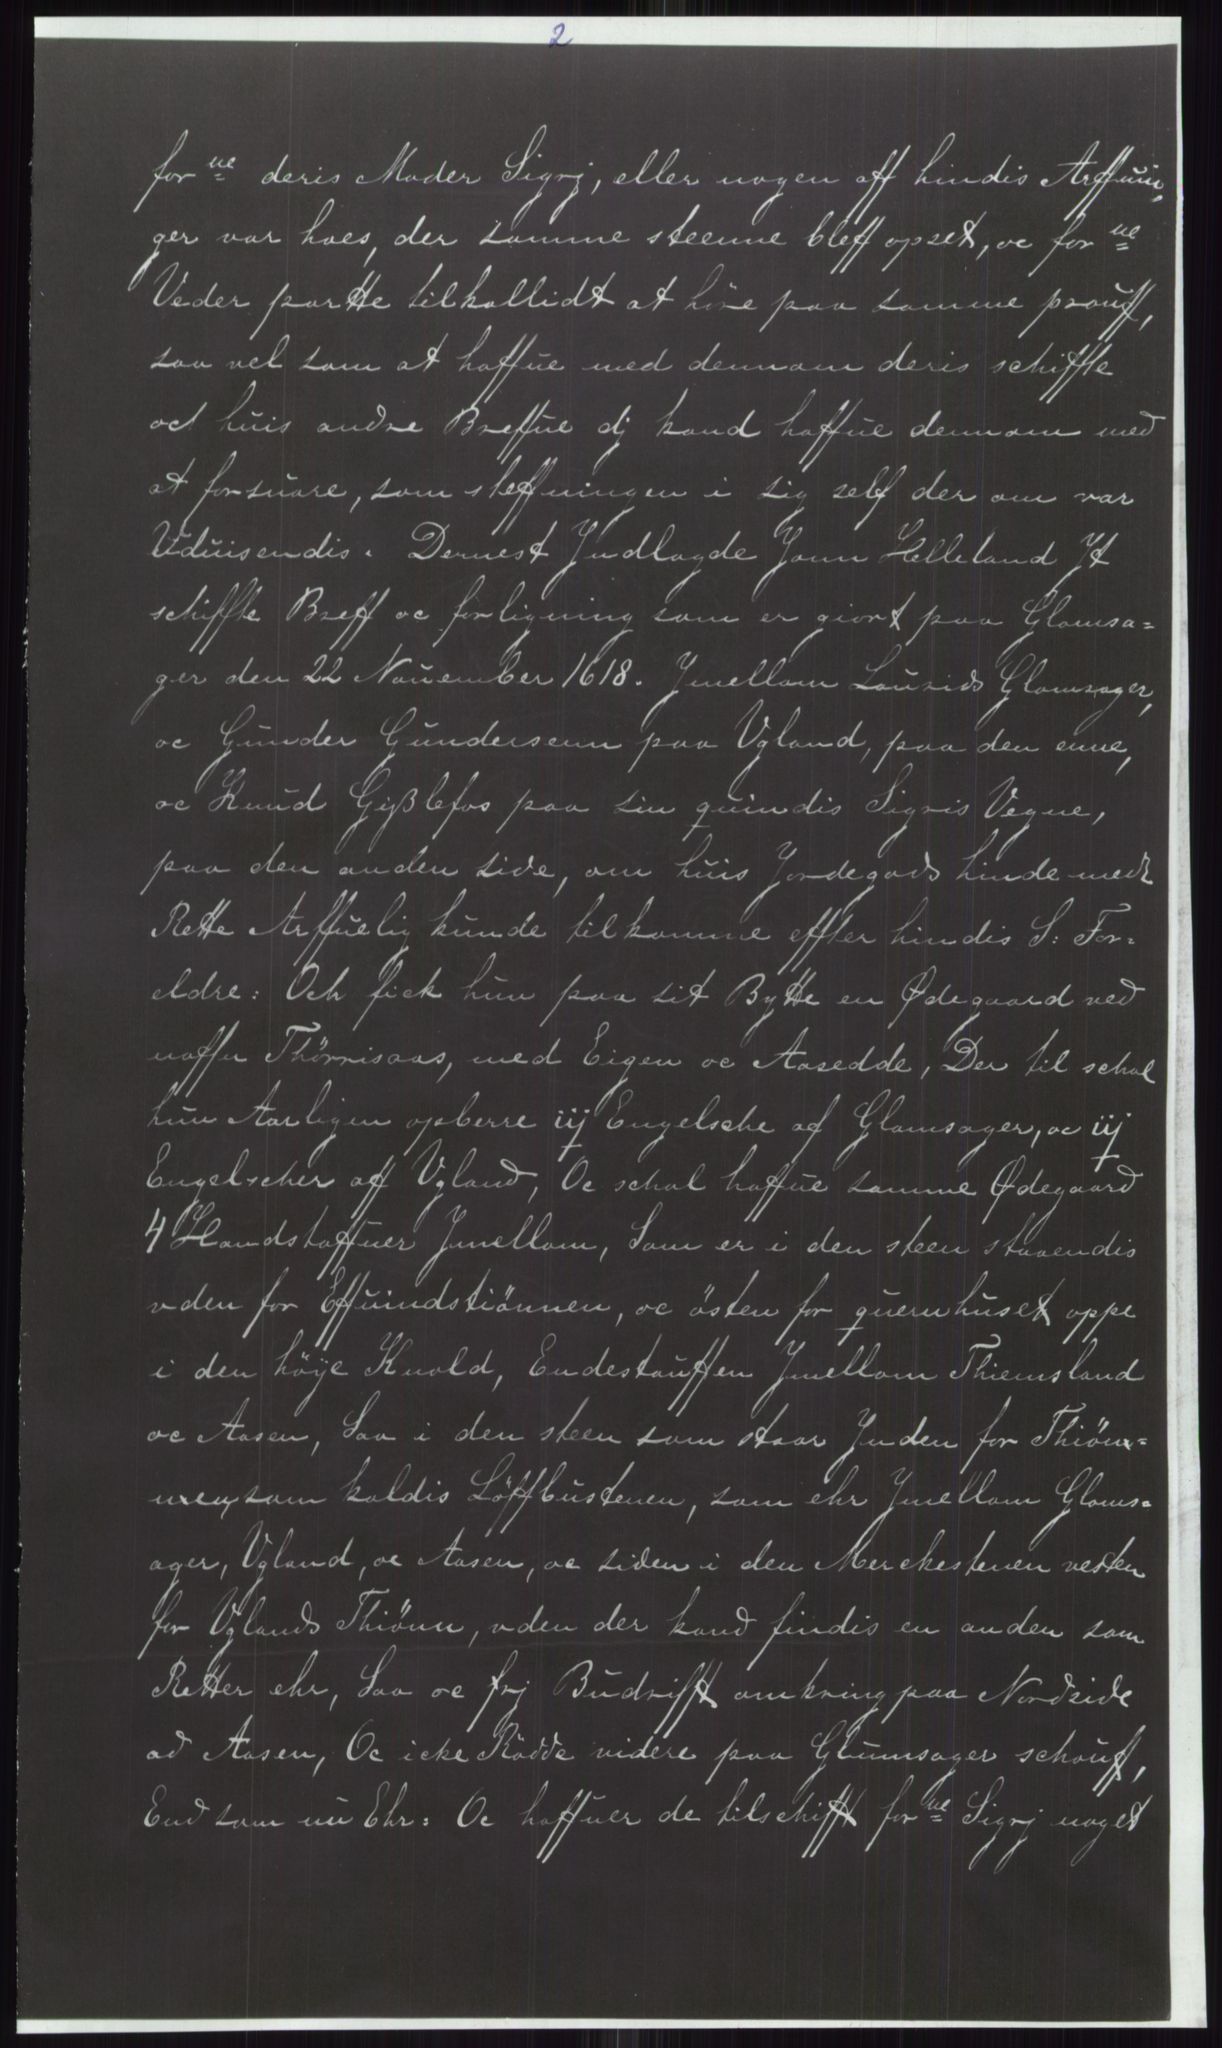 2
for ne deris Moder Sigrj, eller nogen aff hindis Arffuin,
ger var hoes, der samme steenne bleff opset, oc for ne
Veder partte tilkallidt at höre paa samme prouff,
saa vel som at haffue med dennom deris schiffte
och huis andre Breffue dj kand haffue dennom med
at forsuare, som steffningen i sig self der om var
Vduisendis. Dernest Jndlagde Jonn Helleland Jt
schiffte Breff oc forligning som er giort paa Glomsa=
ger den 22 Nouember 1618. Jmellom Laurids Glomsager,
oc Gunder Gundersenn paa Vgland, paa den enne,
oc Knud Gißlefos paa sin quindis Sigris Vegne,
paa den anden side, om huis Jordegods hinde med
Rette Arffuelig kunde tilkomme effter hindis S: For=
eldre: Och fick hun paa sit Bytte en Ødegaard ved
naffn Thörrisaas, med Eigen oc Aasedde, Der til schal
hun Aarligen opberre iij Engelsche af Glomsager, oc iij
Engelscher aff Vgland, Oc schal haffue samme Ødegaard
4 Handstaffuer Jmellom, Som er i den steen staaendis
vden for Effuindstiönnen, oc östen for quernhuset oppe
i den höÿe Knold, Endestauffen Jmellom Thiemsland
oc Aasen, Saa i den steen som staar Jnden for Thiönn=
nen, som kaldis Löffbustenen, som ehr Jmellom Gloms=
ager, Vgland, oc Aasen, oc siden i den Merckestenen vesten
for Vglands Thiönn, vden der kand findis en anden som
Retter ehr, Saa oc frj Budrifft omkring paa Nordside
ad Aasen, Oc icke Rödde videre paa Glumsager schouff,
End som nu Ehr: Oc haffuer de tilschifft for ne Sigrj noget